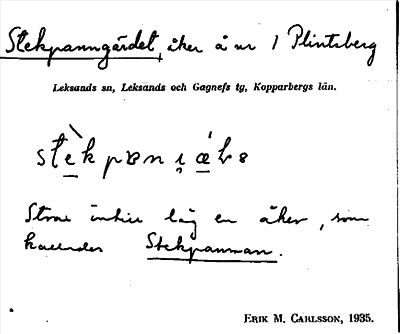 Stekpanngärdet, åker å nr 1 Plintsberg
Leksands sn, Leksands och Gagnefs tg, Kopparbergs län.
Strax intill låg en åker, som
kallades Stekpannan.
ERIK M. CARLSSON, 1935.